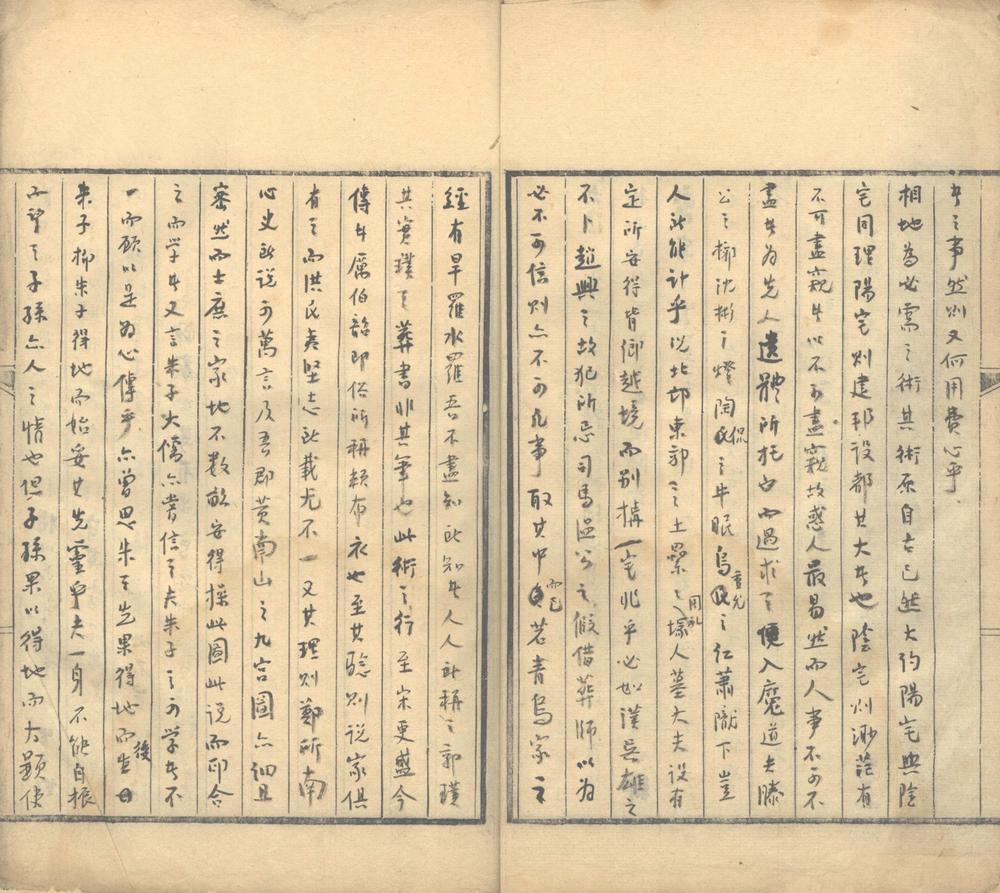 者之事然則又何用費心乎
相地為必需之術其術原自古已然大約陽宅與陰
宅同理陽宅則建邦設都其大者也陰宅則渺茫有
不可盡窺者以不可盡窺故惑人最易然而人事不可不
盡者為先人遺體所托也而過求之便入魔道夫滕
公之槨沈彬之燈陶侃之牛眠烏重允之仁蕭隴下豈
人所能計乎況北邙東郭之土纍纍用列塚人墓大夫設有
定所安得背鄉越境而別構一宅兆乎必如漢吳雄之
不卜趙興之故犯所忌司馬溫公之假借葬師以為
必不可信則亦不可凡事取其中而已若青烏家之
經有旱羅水羅吾不盡知所知者人人所稱之郭璞
其實璞之葬書非其筆也此術之行至宋更盛今
傳者厲伯韶即俗所稱賴布衣也至其驗則說家俱
有之而洪氏夷堅志所載尤不一又其理則鄭所南
心史所說可萬言及吾郡黃南山之九宮圖亦細且
密然而士庶之家地不數畝安得操此圖此說而印合
之而學者又言朱子大儒亦嘗信之夫朱子之可學者不
一而顧以是為心傳乎亦曾思朱之先果得地而後生
朱子抑朱子得地而始妥其先靈乎夫一身不能自振
而望之子孫亦人之情也但子孫果以得地而大顯使